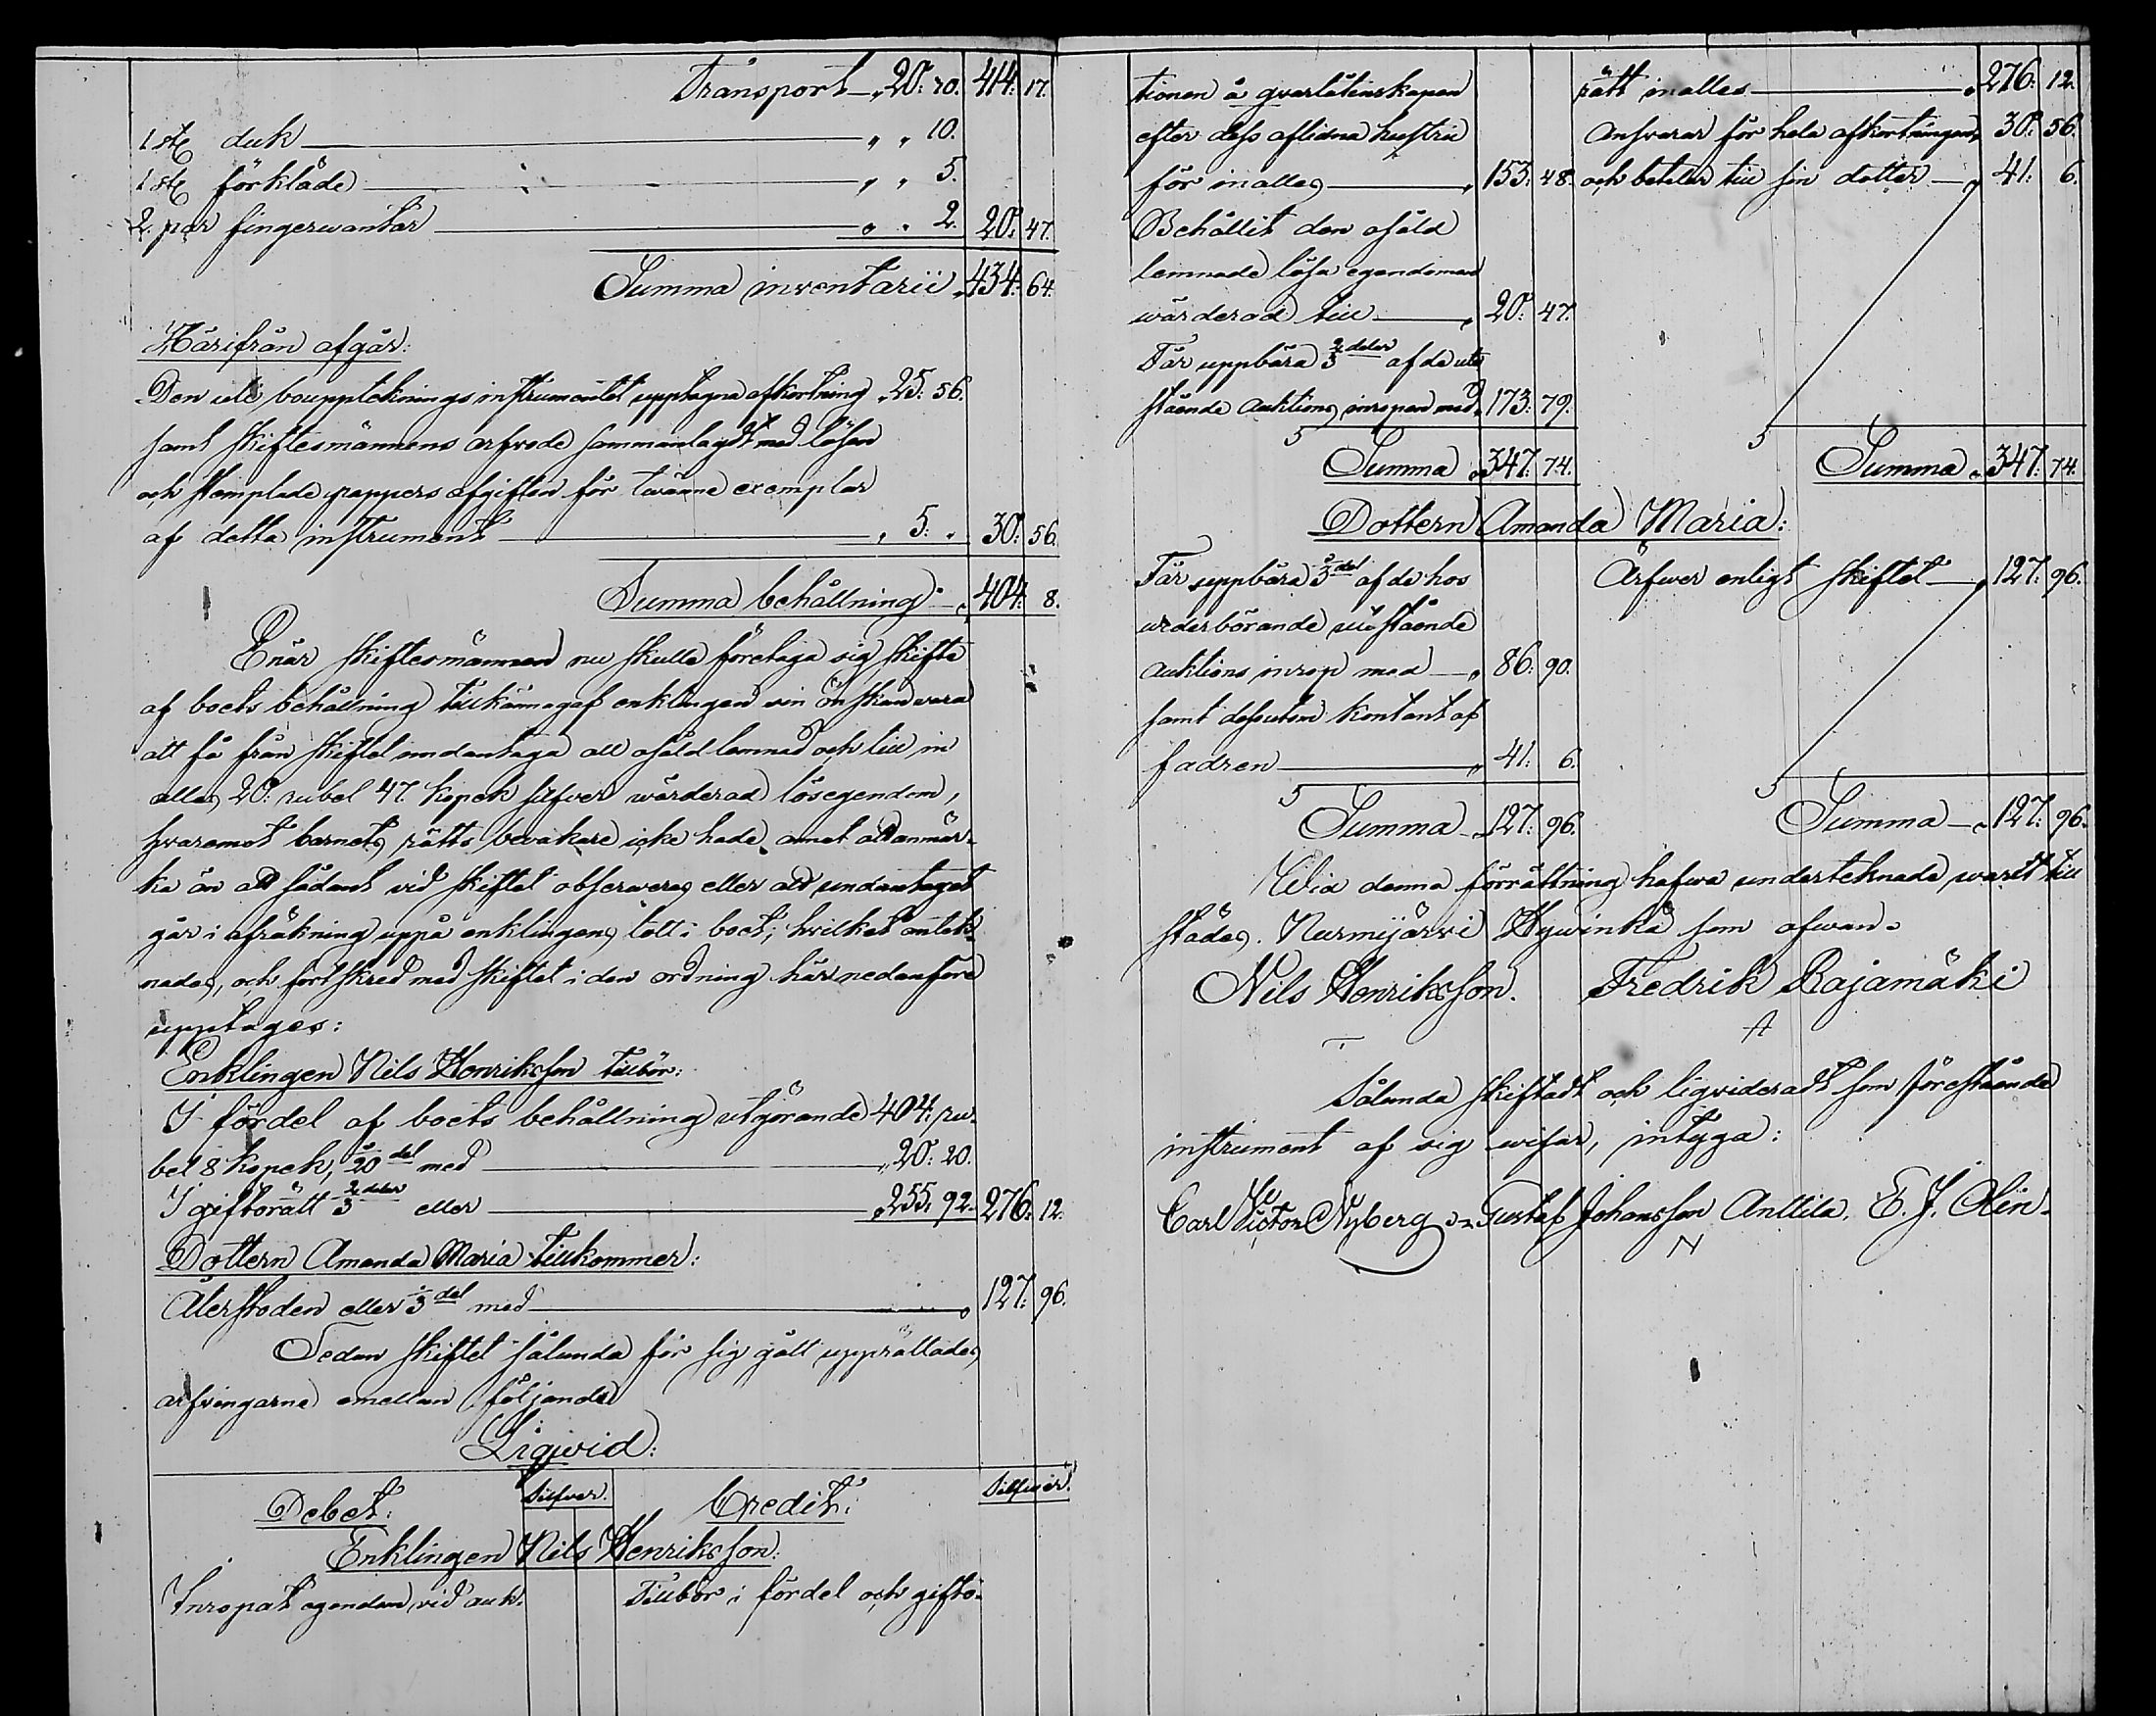 Transport „ 20: 70. 414: 17.
1 st. duk „ „ 10.
1 st. förkläde „ „ 5.
2. par fingerwantar „ „ 2. 20: 47.
Summa inventarii „ 434: 64.
Härifrån afgår:
Den uti bouppteknings instrumentet upptagna afkortning „ 25: 56.
samt skiftesmännens arfvode sammanlagdt med lösen
och stämplade pappers afgiften för tvänne exemplar
af detta instrument „ 5: „ 30: 56.
Summa behållning „ 404: 8.
Enär skiftesmännen nu skulle företaga sig skifte
af boets behållning tillkännagaf enklingen sin önskan vara
att få från skiftet undantaga all osåld lemnad och till in
alles 20: rubel 47. kopek silfver wärderad lösegendom,
hvaremot barnets rätts bevakare icke hade annat att anmär-
ka än att sådant vid skiftet observeras eller att undantaget
går i afräkning uppå enklingens lott i boet; hvilket antek-
nades, och fortskred med skiftet i den ordning här nedanföre
upptages:
Enklingen Nils Henriksson tillbör:
I fördel af boets behållning utgörande 404: ru-
bel 8 kopek, 1/20 del med „ 20: 20.
I giftorätt 2/3 delar eller „ 255: 92. 276: 12.
Dottern Amanda Maria tillkommer:
Återstoden eller 1/3 del med „ 127: 96.
Sedan skiftet sålunda för sig gått upprättades
arfvingarne emellan följande
Liqwid:
Debet: Silfver. Credit: Silfver.
Enklingen Nils Henriksson:
Inropat egendom vid auk- Tillbör i fördel och gifto-
tionen å qvarlåtenskapen rätt inalles „ 276: 12.
efter dess aflidna hustru Ansvarar för hela afkortningen „ 30: 56.
för inalles „ 153: 48. och betalar till sin dotter „ 41: 6.
Behållit den osåld
lemnade lösa egendomen
wärderad till „ 20: 47.
Får uppbära 2/3 delar af de ute
stående auktions inropen med „ 173: 79.
Summa „ 347: 74. Summa „ 347: 74.
Dottern Amanda Maria:
Får uppbära 1/3 del af de hos Ärfwer enligt skiftet „ 127: 96.
wederbörande utestående
auktions inrop med „ 86: 90.
samt dessutom kontant af
fadren „ 41: 6.
Summa „ 127: 96. Summa „ 127: 96.
Wid denna förrättning hafwa undertecknade warit till
städes. Nurmijärvi Hywinkä som ofwan.
Nils Henriksson. Fredrik Rajamäki
Sålunda skiftadt och liqvideradt som förestående
instrument af sig wisar, intyga:
Carl Victor Nyberg Gustaf Johansson Anttila. E. J. Olin.